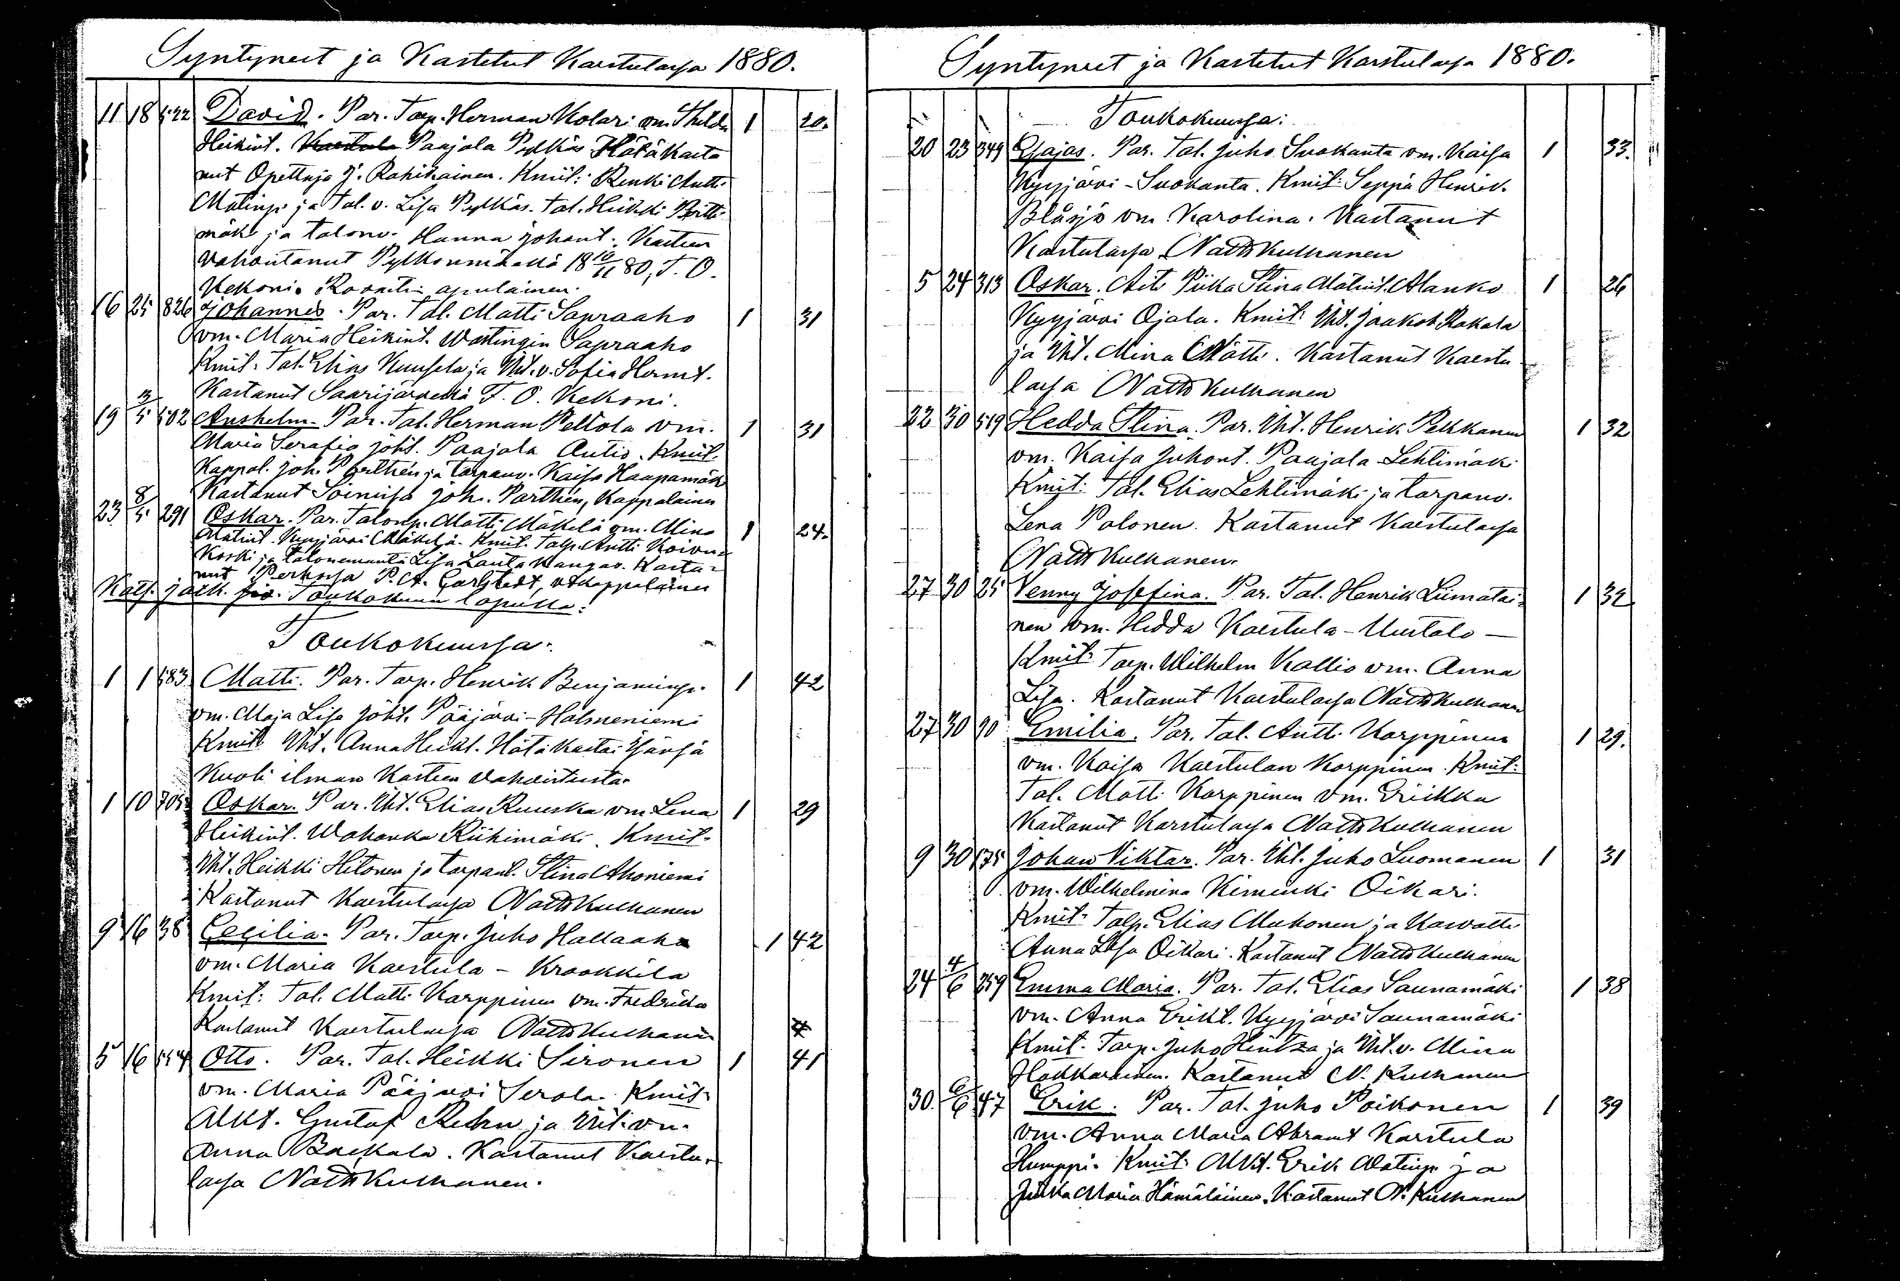 Syntyneet ja Kastetut Karstulassa 1880.
11 18 522 David. Par. Torp. Herman Kolari vm. Thilda 1 20.
Heikint. Paajala Pylkäs Hätäkasta
nut Opettaja J. Rahikainen. Kmit: Renki Antti
Matinp. ja tal. v. Lisa Pylkäs. tal. Heikki Pertti
mäki ja talonv. Hanna Johant. Kasteen
vahvistanut Pylkönmäellä 18 16/11 80, F. O.
Kekoni. Rovastin apulainen.
16 25 826 Johannes. Par. Tal. Matti Sapraaho 1 31
vm. Maria Heikint. Wastingin Sapraaho
Kmit. Tal. Elias Kuusela ja Iht. v. Sofia Hermt.
Kastanut Saarijärvellä F. O. Kekoni.
19 3/5 502 Anshelm. Par. Tal. Herman Peltola vm. 1 31
Maria Serafia Joht. Paajala Autio. Kmit.
Kappal. Joh. Parthén ja torpanv. Kaisa Haapamäki
Kastanut Soinissa Joh. Parthén, Kappalainen
23 8/5 291 Oskar. Par. Talonp. Matti Mäkelä vm. Mina 1 24.
Matint. Kyyjärvi Mäkelä. Kmit. Talp. Antti Koivu-
koski ja talonemäntä Lisa Kangas. Kasta-
nut Perhossa P. A. Carlstedt, v.t. kappalainen
Kats. jatk. Toukokuun lopulla:
Toukokuussa:
1 1 583 Matti. Par. Torp. Henrik Benjaminp. 1 42
vm. Maja Lisa Joht. Pääjärvi-Halmeniemi
Kmit Iht. Anna Heikt. Hätäkastai Jänsjä
Kuoli ilman Kasteen vahvistusta.
1 10 705 Oskar. Par. Iht. Elias Ruuska vm. Lena 1 29
Heikint. Wahanka Riihimäki. Kmit.
Iht. Heikki Hitonen ja torpant. Stina Ahoniemi
Kastanut Karstulassa Natt Kulhanen
9 16 38 Cecilia. Par. Torp. Juho Hallaaho 1 42
vm. Maria Karstula - Kraakkila
Kmit: Tal. Matti Karppinen vm. Fredrika
Kastanut Karstulassa Natt Kulhanen
5 16 554 Otto. Par. Tal. Heikki Sironen 1 41
vm. Maria Pääjärvi Serola. Kmit:
Alkt. Gustaf Rehn ja Iht. vn.
Anna Backala. Kastanut Karstu-
lassa Natt Kulhanen.
Syntyneet ja Kastetut Karstulassa 1880.
Toukokuussa:
20 23 349 Esajas. Par. Tal. Juho Suokanta vm. Kaisa 1 33.
Kyyjärvi-Suokanta. Kmit: Seppä Henrik
Blåsjö vm Karolina. Kastanut
Karstulassa Natt Kulhanen
5 24 313 Oskar. Äiti Piika Stina Matint. Alanko 1 26
Kyyjärvi Ojala. Kmit: Iht. Jaakob Kakala
ja Iht. Mina Mätti. Kastanut Karstu-
lassa Natt Kulhanen
22 30 519 Hedda Stina. Par. Iht. Henrik Pelkkanen 1 32
vm. Kaisa Juhont. Paajala Lehtimäki
Kmit: Tal. Elias Lehtimäki ja torpanv.
Lena Polonen. Kastanut Karstulassa
Natt Kulhanen.
27 30 25 Venny Josefina. Par. Tal. Henrik Liimatai- 1 32
nen vm. Hedda Karstula-Uustalo-
Kmit: Torp. Wilhelm Kallio vm. Anna
Lisa. Kastanut Karstulassa Natt Kulhanen
27 30 90 Emilia. Par. Tal. Antti Karppinen 1 29.
vm. Kaisa Karstulan Karppinen. Kmit:
Tal. Matti Karppinen vm. Eriikka
Kastanut Karstulassa Natt Kulhanen
9 30 175 Johan Viktor. Par. Iht. Juho Luomanen 1 31
vm. Wilhelmina Kiminki Oikari.
Kmit: Talp. Elias Muhonen ja Kasvatti
Anna Lisa Oikari. Kastanut Natt Kulhanen
24 4/6 259 Emma Maria. Par. Tal. Elias Saunamäki 1 38
vm. Anna Erikt. Kyyjärvi Saunamäki
Kmit. Torp. Juho Hintza ja Iht. v. Mina
Hakkarainen. Kastanut N. Kulhanen
30 6/6 47 Erik. Par. Tal. Juho Poikonen 1 39
vm. Anna Maria Abramt Karstula
Humppi. Kmit: Alkt. Erik Matinp. ja
Maria Hämäläinen. Kastanut N. Kulhanen